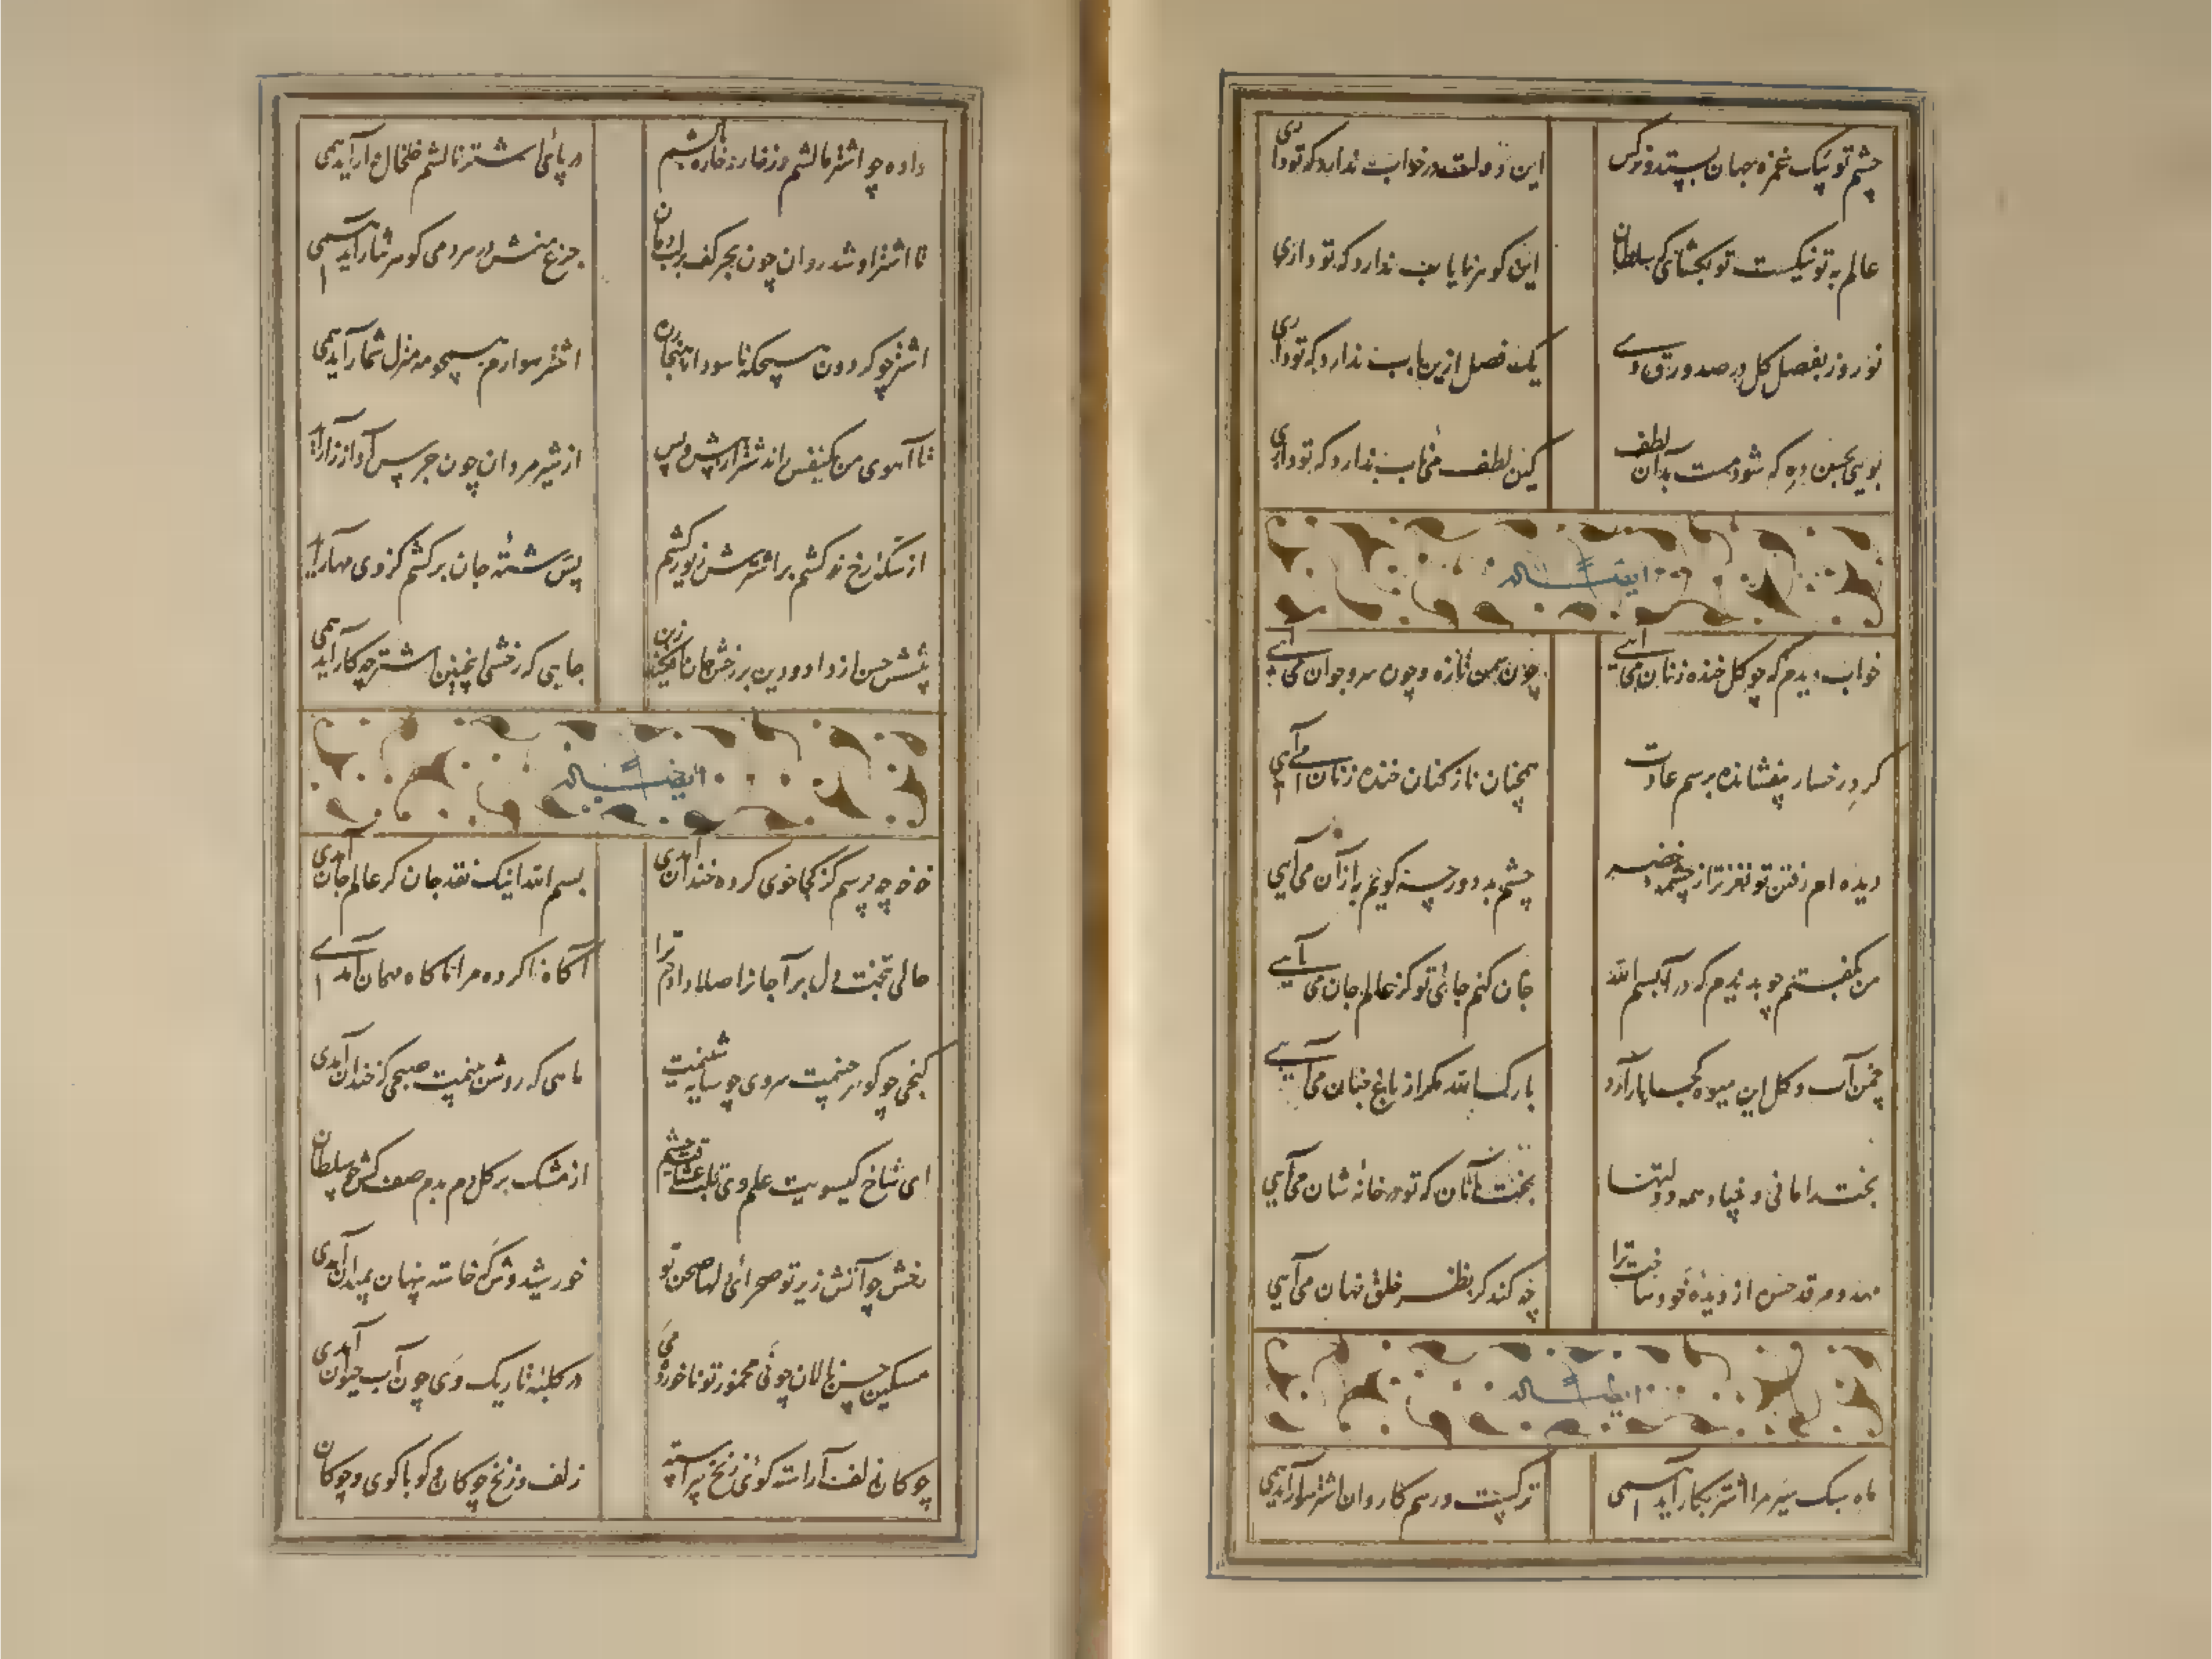 چشم تو بیک غمزه جهان بستد و نرگس
این دولت در خواب ندارد که تو داری
عالم به تو نیکست تو بخشای که سلطان
این گوهر نایاب ندارد که تو داری
نوروز بفصل گل در صد ورق وی
یک فصل ازین باب ندارد که تو داری
بویی بحسن ده که شود مست بدان لطف
کین لطف می ناب ندارد که تو داری
ایضاً له
خواب دیدم که چو گل خنده زنان می آیی
چون سمن تازه و چون سرو جوان می آیی
گرد رخسار بیفشانده برسم عادت
همچنان ناز کنان خنده زنان می آیی
دیده ام رفتن تو نغزتر از چشمه خضر
چشم بد دور چه گویم به از آن می آیی
من بگفتم چو بدیدم که در آ بسم الله
جان کنم جای تو کز عالم جان می آیی
چمن آب و گل این میوه کجا بار آرد
بارک الله مگر از باغ جنان می آیی
بخت و دولتها
بخت آنان که تو در خانه شان می آیی
حسن از دیده خود ساخت ترا
چه کند کز نظر خلق نهان می آیی
ایضاً له
ماه سبک سیر مرا اشتر بکار آید همی
ترکیست در هم کاروان اشتر سوار آید همی
داده چو اشتر مالشم
در پای اشتر نالشم خلخال وار آید همی
تا اشتر او شد روان چون بحر کف بر لب دوان
گوهر نثار آید همی
اشتر چو گردون
اشتر سوارم همچو مه منزل شمار آید همی
تا آهوی من یکنفس راند شتر از پیش و پس
از شیر مردان چون جرس آواز زار آید
از سکه رخ زر کشم بر اشترش زیور کشم
پس رشته جان بر کشم کز وی مهار آید
جایی که رخشی اینچنین اشتر چه کار آید همی
ایضاً له
خه خه چه پرسم کز کجا خوی کرده خندان آمدی
بسم الله اینک نقد جان کز عالم جان آمدی
حالی بتخت دل برآ جان را صلا دادم ترا
آگاه نا کرده مرا ناگاه مهمان آمدی
گنجی چو گوهر سروی چو سایه
ماهی که روشن بینمت صبحی که خندان آمدی
ای شاخ گیسویت علم وی قلب عشاقت حشم
از مشک بر گل دم بدم صف کش چو سلطان
رخش چو آتش زیر تو صحرای دلها صحن تو
خورشید وش که خاسته پنهان بمیدان آمدی
مسکین حسن نالان چو نی مخمور تو ناخورده می
در کلبه تاریک وی چون آب حیوان آمدی
چوگان زلف آراسته گوی زنخ پیراسته
زلف و زنخ چوگان و گو با گوی و چوگان